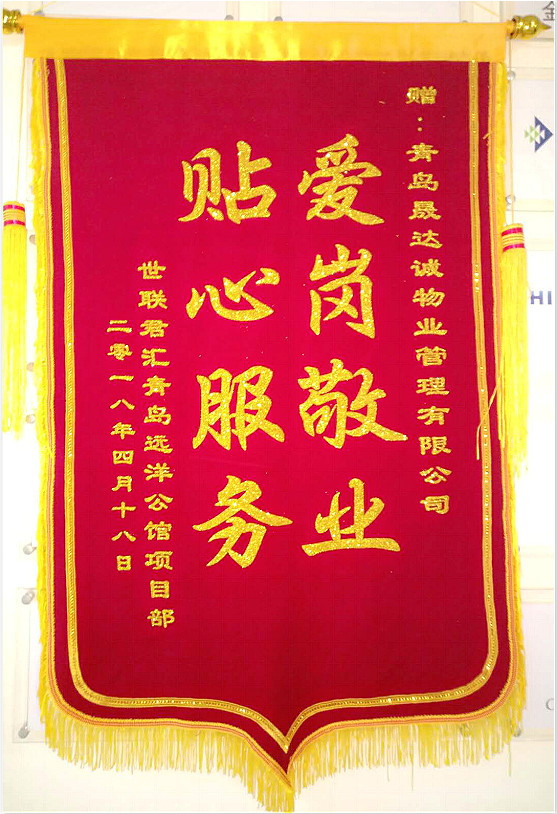 赠：青岛晟达诚物业管理有限公司
爱岗敬业
贴心服务
世联君汇青岛远洋公馆项目部
二零一八年四月十八日
HI